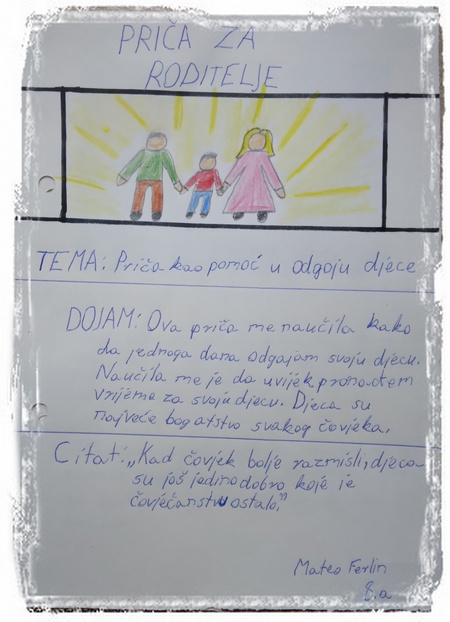 PRIČA ZA
RODITELJE
TEMA: Priča kao pomoć u odgoju djece
DOJAM: Ova priča me naučila kako
da jednoga dana odgajam svoju djecu.
Naučila me je da uvijek pronađem
vrijeme za svoju djecu. Djeca su
najveće bogatstvo svakog čovjeka.
Citat: „Kad čovjek bolje razmisli, djeca
su još jedino dobro koje je
čovječanstvu ostalo."
Mateo Ferlin
8.a